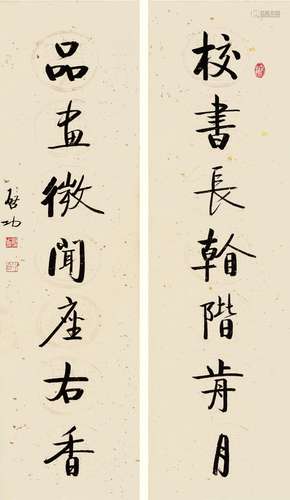 校書長階歬月
品畫微聞座右香
啓功